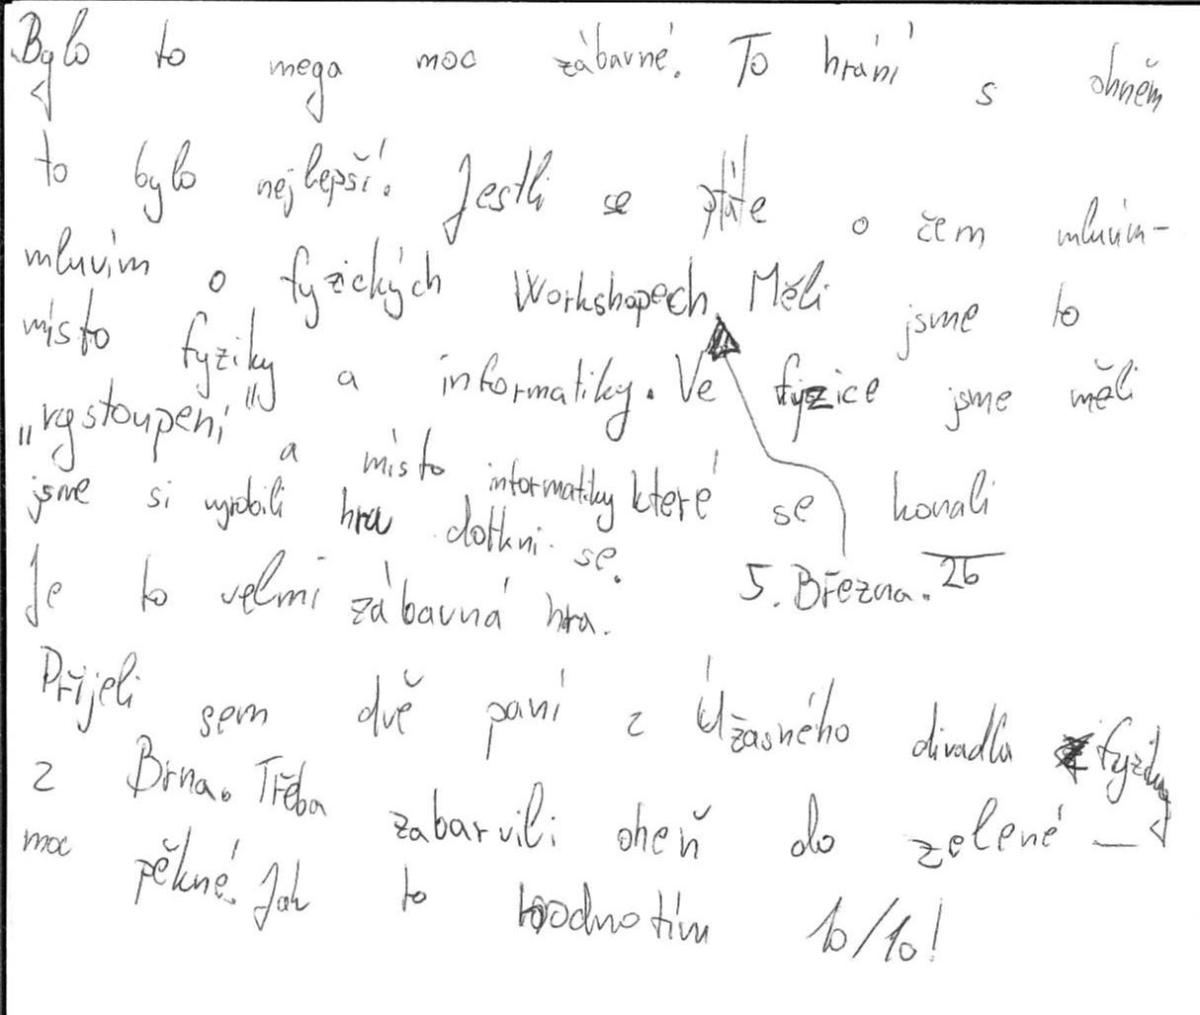 Bylo to mega moc zábavné. To hrání s ohněm
to bylo nejlepší! Jestli se ptáte o čem mluvím-
mluvím o fyzických Workshopech. Měli jsme to
místo fyziky a informatiky. Ve fyzice jsme měli
„vystoupení" a místo informatiky které se konali
jsme si vyrobili hru dotkni se.
5. Března. 26
Je to velmi zábavná hra.
Přijeli sem dvě paní z Úžasného divadla fyziky
z Brna. Třeba zabarvili oheň do zelené –
moc pěkné. Jak to hodnotím 10/10!